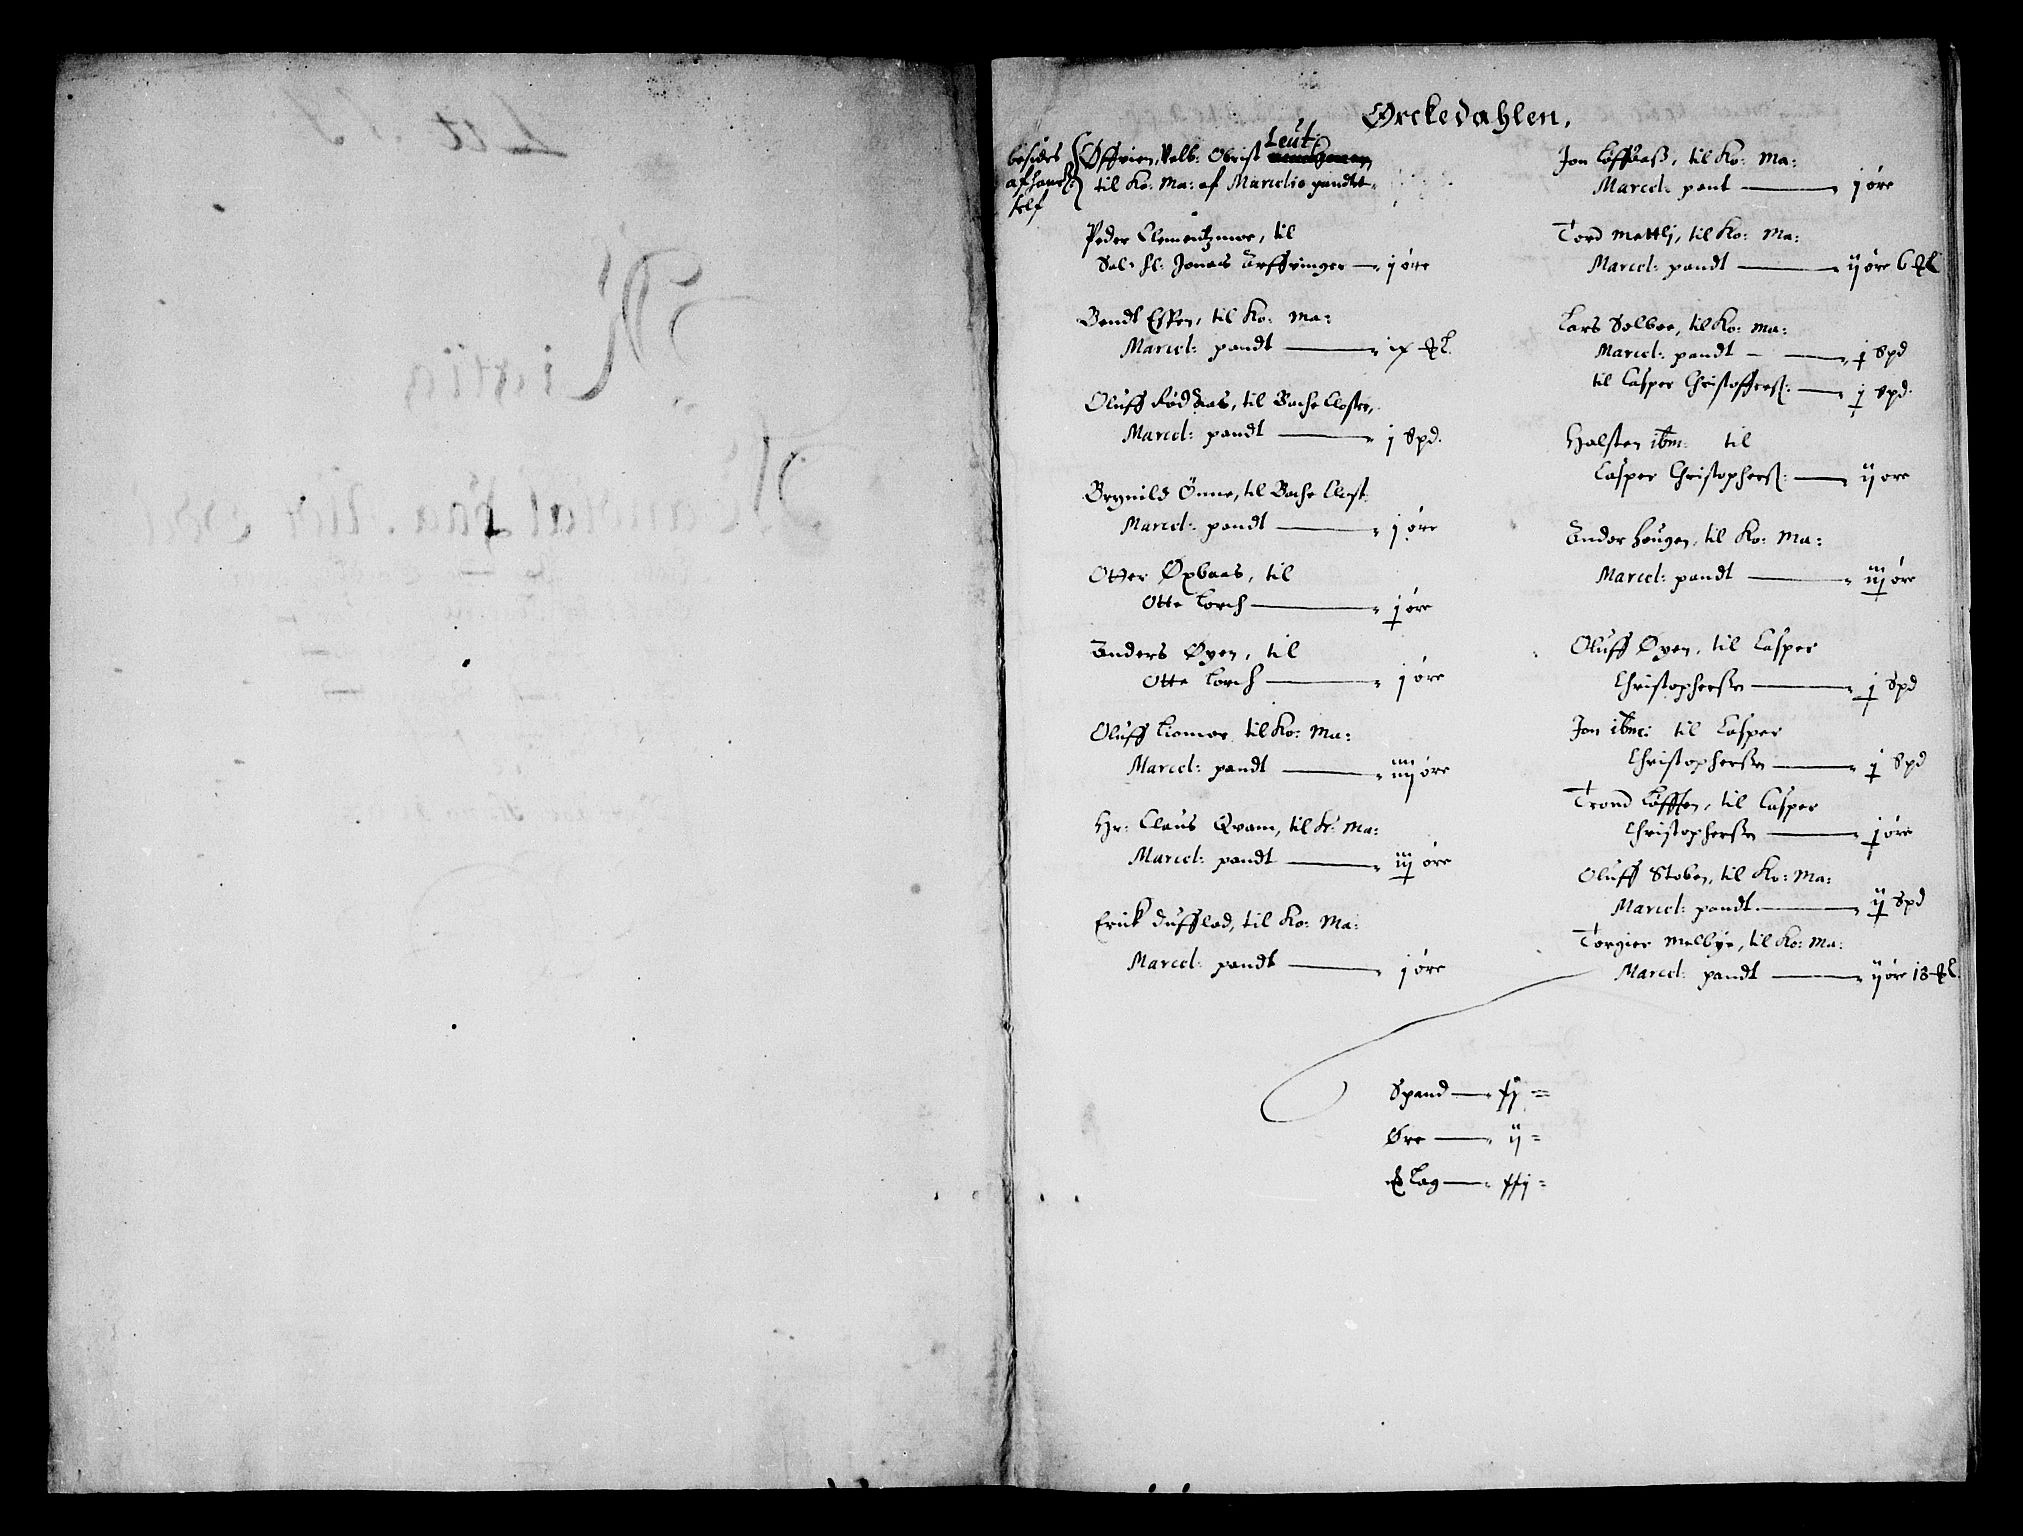 Ørckedahlen,
besides
af hans
self
Øffvien, Velb: Obrist Leut:
til Ko: Ma: af Marcelio pandtet
Peder Clementzmoe, til
Sal: Hl: Jonas Erffvinger — j öre
Bendt Espen, til Ko: Ma:
Marcel: pandt
Oluff Fødhaas, til Bache Closter,
Marcel: pandt — j Spd.
Brynild Önne, til Bache Clost:
Marcel: pandt — j öre
Otter Øxbaas, til
Otte Lorch — j öre
Anders Øyen, til
Otte Lorch — j öre
Oluff Liomoe til Ko: Ma:
Marcel: pandt — iiij öre
Hr: Claus Qvam, til K: Ma:
Marcel: pandt — iij öre
Erick Dufflad, til Ko: Ma:
Marcel: pandt — j öre
Jon Löffsaas, til Ko: Ma:
Marcel: pant — j öre
Tord Mettli, til Ko: Ma:
Marcel: pandt — ij öre 6
Lars Solboe, til Ko: Ma:
Marcel: pandt — j Spd
til Casper Christoffers: — j Spd.
Halsten ibm: til
Casper Christophers: — ij öre
Ander Haugen, til Ko: Ma:
Marcel: pandt — iij öre
Oluff Øyen, til Casper
Christophersen — j Spd
Jon ibm: til Casper
Christophersen — j Spd
Trond Löffsen, til Casper
Christophersen — j öre
Oluff Stoben, til Ko: Ma:
Marcel: pandt — ij Spd
Torgier Melbye, til Ko: Ma:
Marcel: pandt — ij öre 18
Spand —
Øre — ij =
Lag —